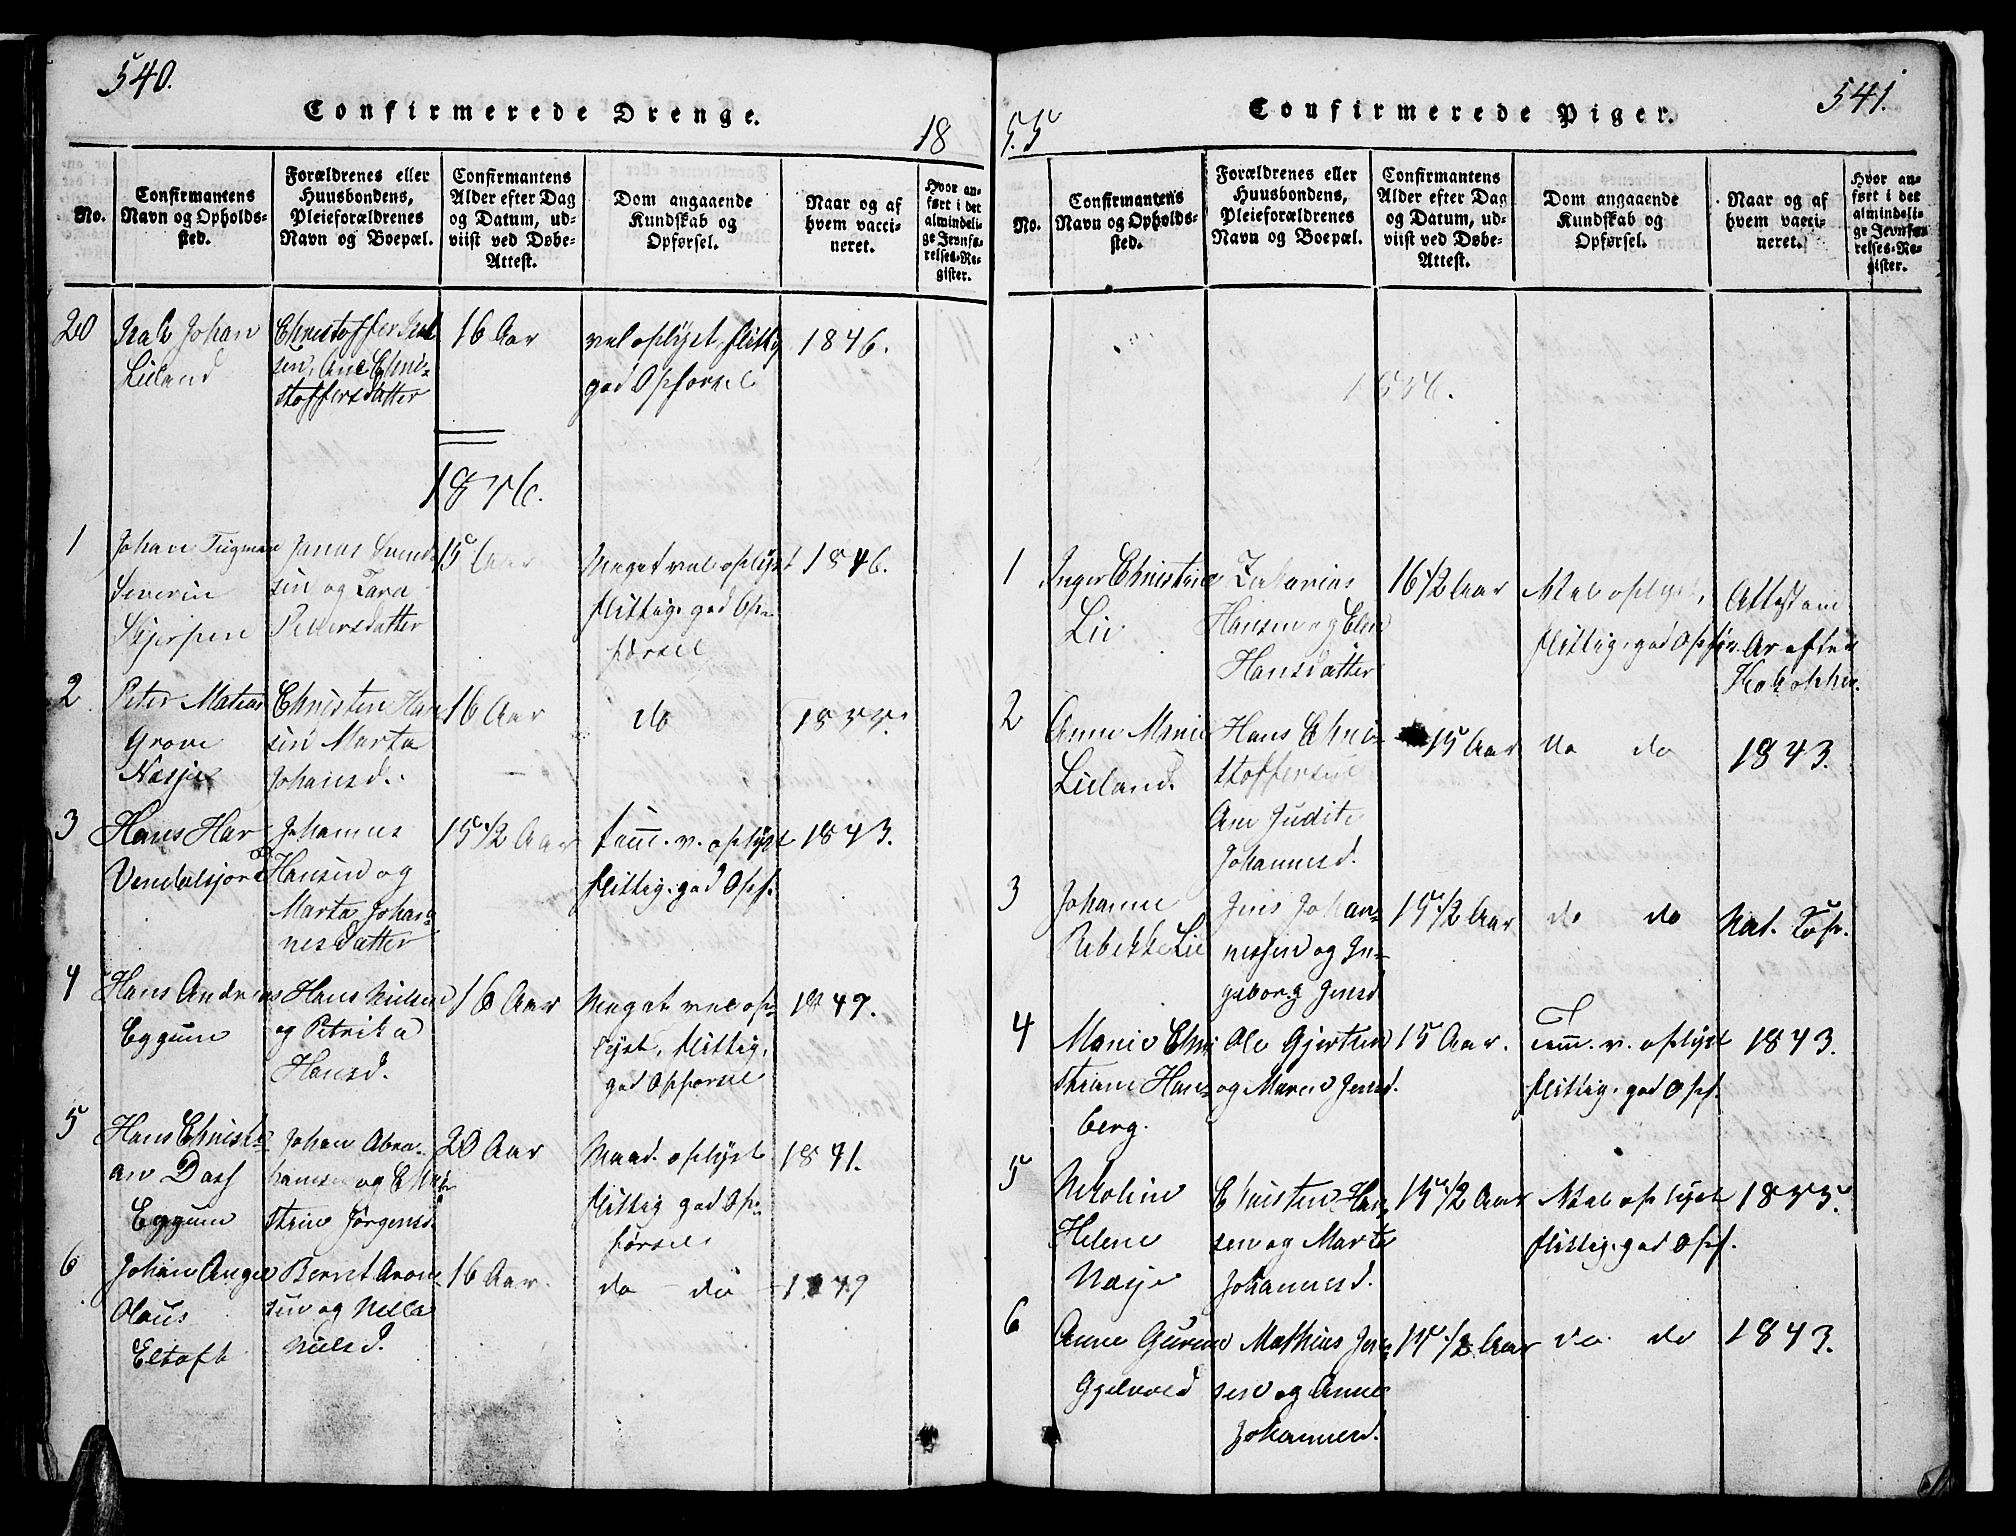 540.
Confirmerede Drenge.
18
No.
Confirmantens
Navn og Opholds-
sted.
Forældrenes eller
Huusbondens,
Pleieforældrenes
Navn og Boepæl.
Confirmantens
Alder efter Dag
og Datum, ud-
viist ved Døbe-
Attest.
Dom angaaende
Kundskab og
Opførsel.
Naar og af
hvem vacci-
neret.
Hvor an-
ført i det
almindeli-
ge Jevnfø-
relses-Re-
gister.
20
Isak Johan
Lieland
Christoffer Isak
sen, Ane Chri-
stoffersdatter
16 Aar
vel oplyst, flittig
god Opførsel
1846.
1
Johan Tugman
Severin
Skjerpen
Jonas Svend
sen og Lara
Pedersdatter
15 Aar
Meget vel oplyst
flittig, god Op-
førsel
1846.
2
Peter Matias
Grove
Næsje
Christen Han
sen Marta
Johansd.
16 Aar
do
3
Hans Har
Vendelsjord
Johannes
Hansen og
Marta Johan-
nesdatter
15 1/2 Aar
temm. v. oplyst
flittig, god Opf.
1843.
4
Hans Andreas
Eggum
Hans Nielsen
og Petrika
Hansd.
16 Aar
Meget vel op-
lyst, flittig,
god Opførsel
1849.
5
Hans Christi-
an Dass
Eggum
Johan Abra-
hamsen og
Jørgensd
20 Aar
Maad. oplyst
flittig god Op-
førsel.
1841.
6
Johan Anger
Olaus
Eltoft
Bernt Aron
sen og
Nielsd.
16 Aar.
do - do
1849
55
Confirmerede Piger.
541.
No.
Confirmantens
Navn og Opholds-
sted.
Forældrenes eller
Huusbondens,
Pleieforældrenes
Navn og Boepæl.
Confirmantens
Alder efter Dag
og Datum, ud-
viist ved Døbe-
Attest.
Dom angaaende
Kundskab og
Opførsel.
Naar og af
hvem vacci-
neret.
Hvor an-
ført i det
almindeli-
ge Jevnfø-
relses-Re-
gister.
1
Inger Christine
Lie
Zakarias
Hansen og Elen
Hansdatter
16 1/2 Aar
Vel oplyst,
flittig, god Opfør.
Attest om
Ar efter
Kokopper.
2
Anne Marie
Lieland.
Hans Chri-
stoffersen
Ane Judite
Johannesd.
15 Aar
do do
1843.
3
Johanne
Rebekke Lie
Jens Johan-
nessen og In-
geborg Jensd
15 1/2 Aar
do do
Nat. Kop.
4
Marie Chri
stiane Hans-
berg.
Ole Gjertsen
og Maren Jensd.
15 Aar.
Temm. v. oplyst
flittig, god Opf.
1843.
5
Nikoline
Helene
Næsje
Christen Han-
sen og Marta
Johannesd.
15 1/2 Aar
Vel oplyst
flittig, god Opf.
6
Anne Gurine
Gjelvold
Mathias Jen-
sen og Anne
Johannesd.
15 1/2 Aar
do do
1843.